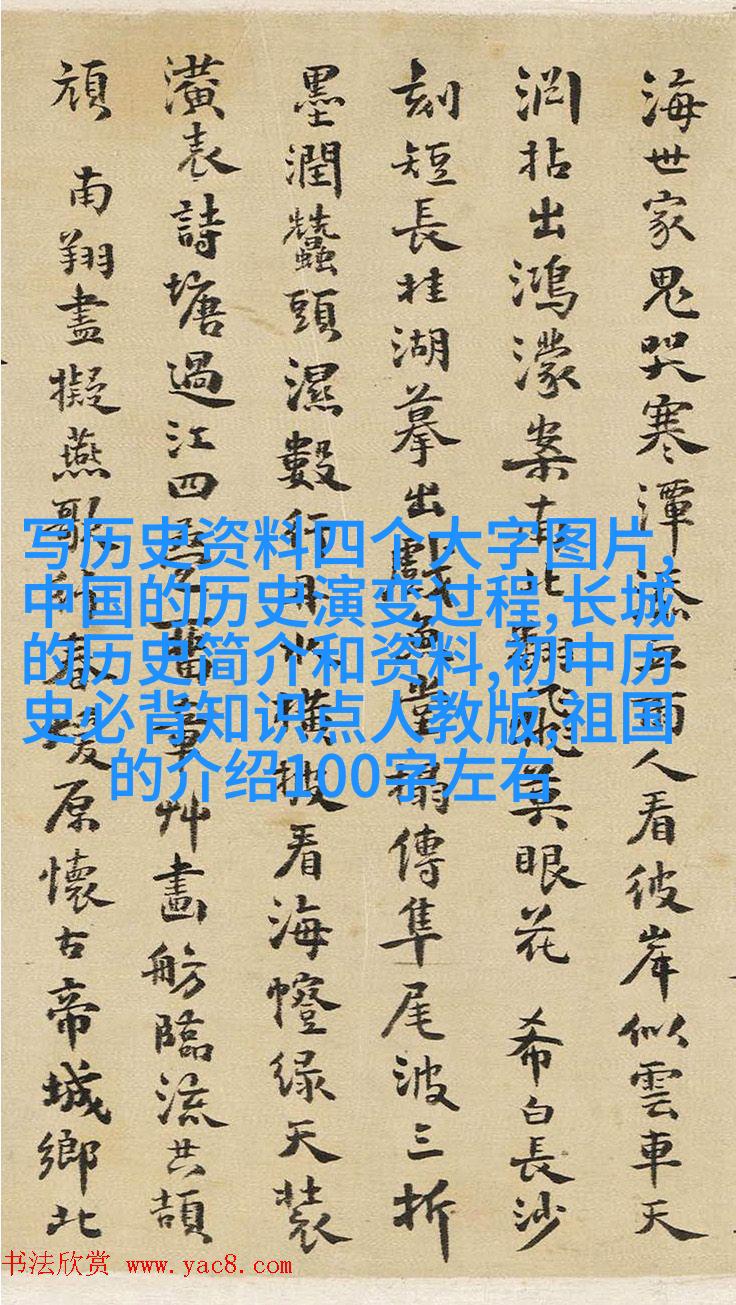 海世家鬼哭寒潭添互雨人看彼岸似雲車天
淵拈出鴻濛案南北翻飛莫眼花 希白長沙
刻短長桂湖摹出戲魚堂搨傳隼尾波三折
墨潤蠶頭濕數行丹水橫披看海幢緑天裝
潢表詩塘過江四 舊章艸畫舫臨流共頡
頏 南翔盡擬燕歌行春 原懷古帝城鄉北
写历史资料四个大字图片,
中国的历史演变过程,长城
的历史简介和资料,初中历
史必背知识点人教版,祖国
的介绍100字左右
书法欣赏 www.yac8.com